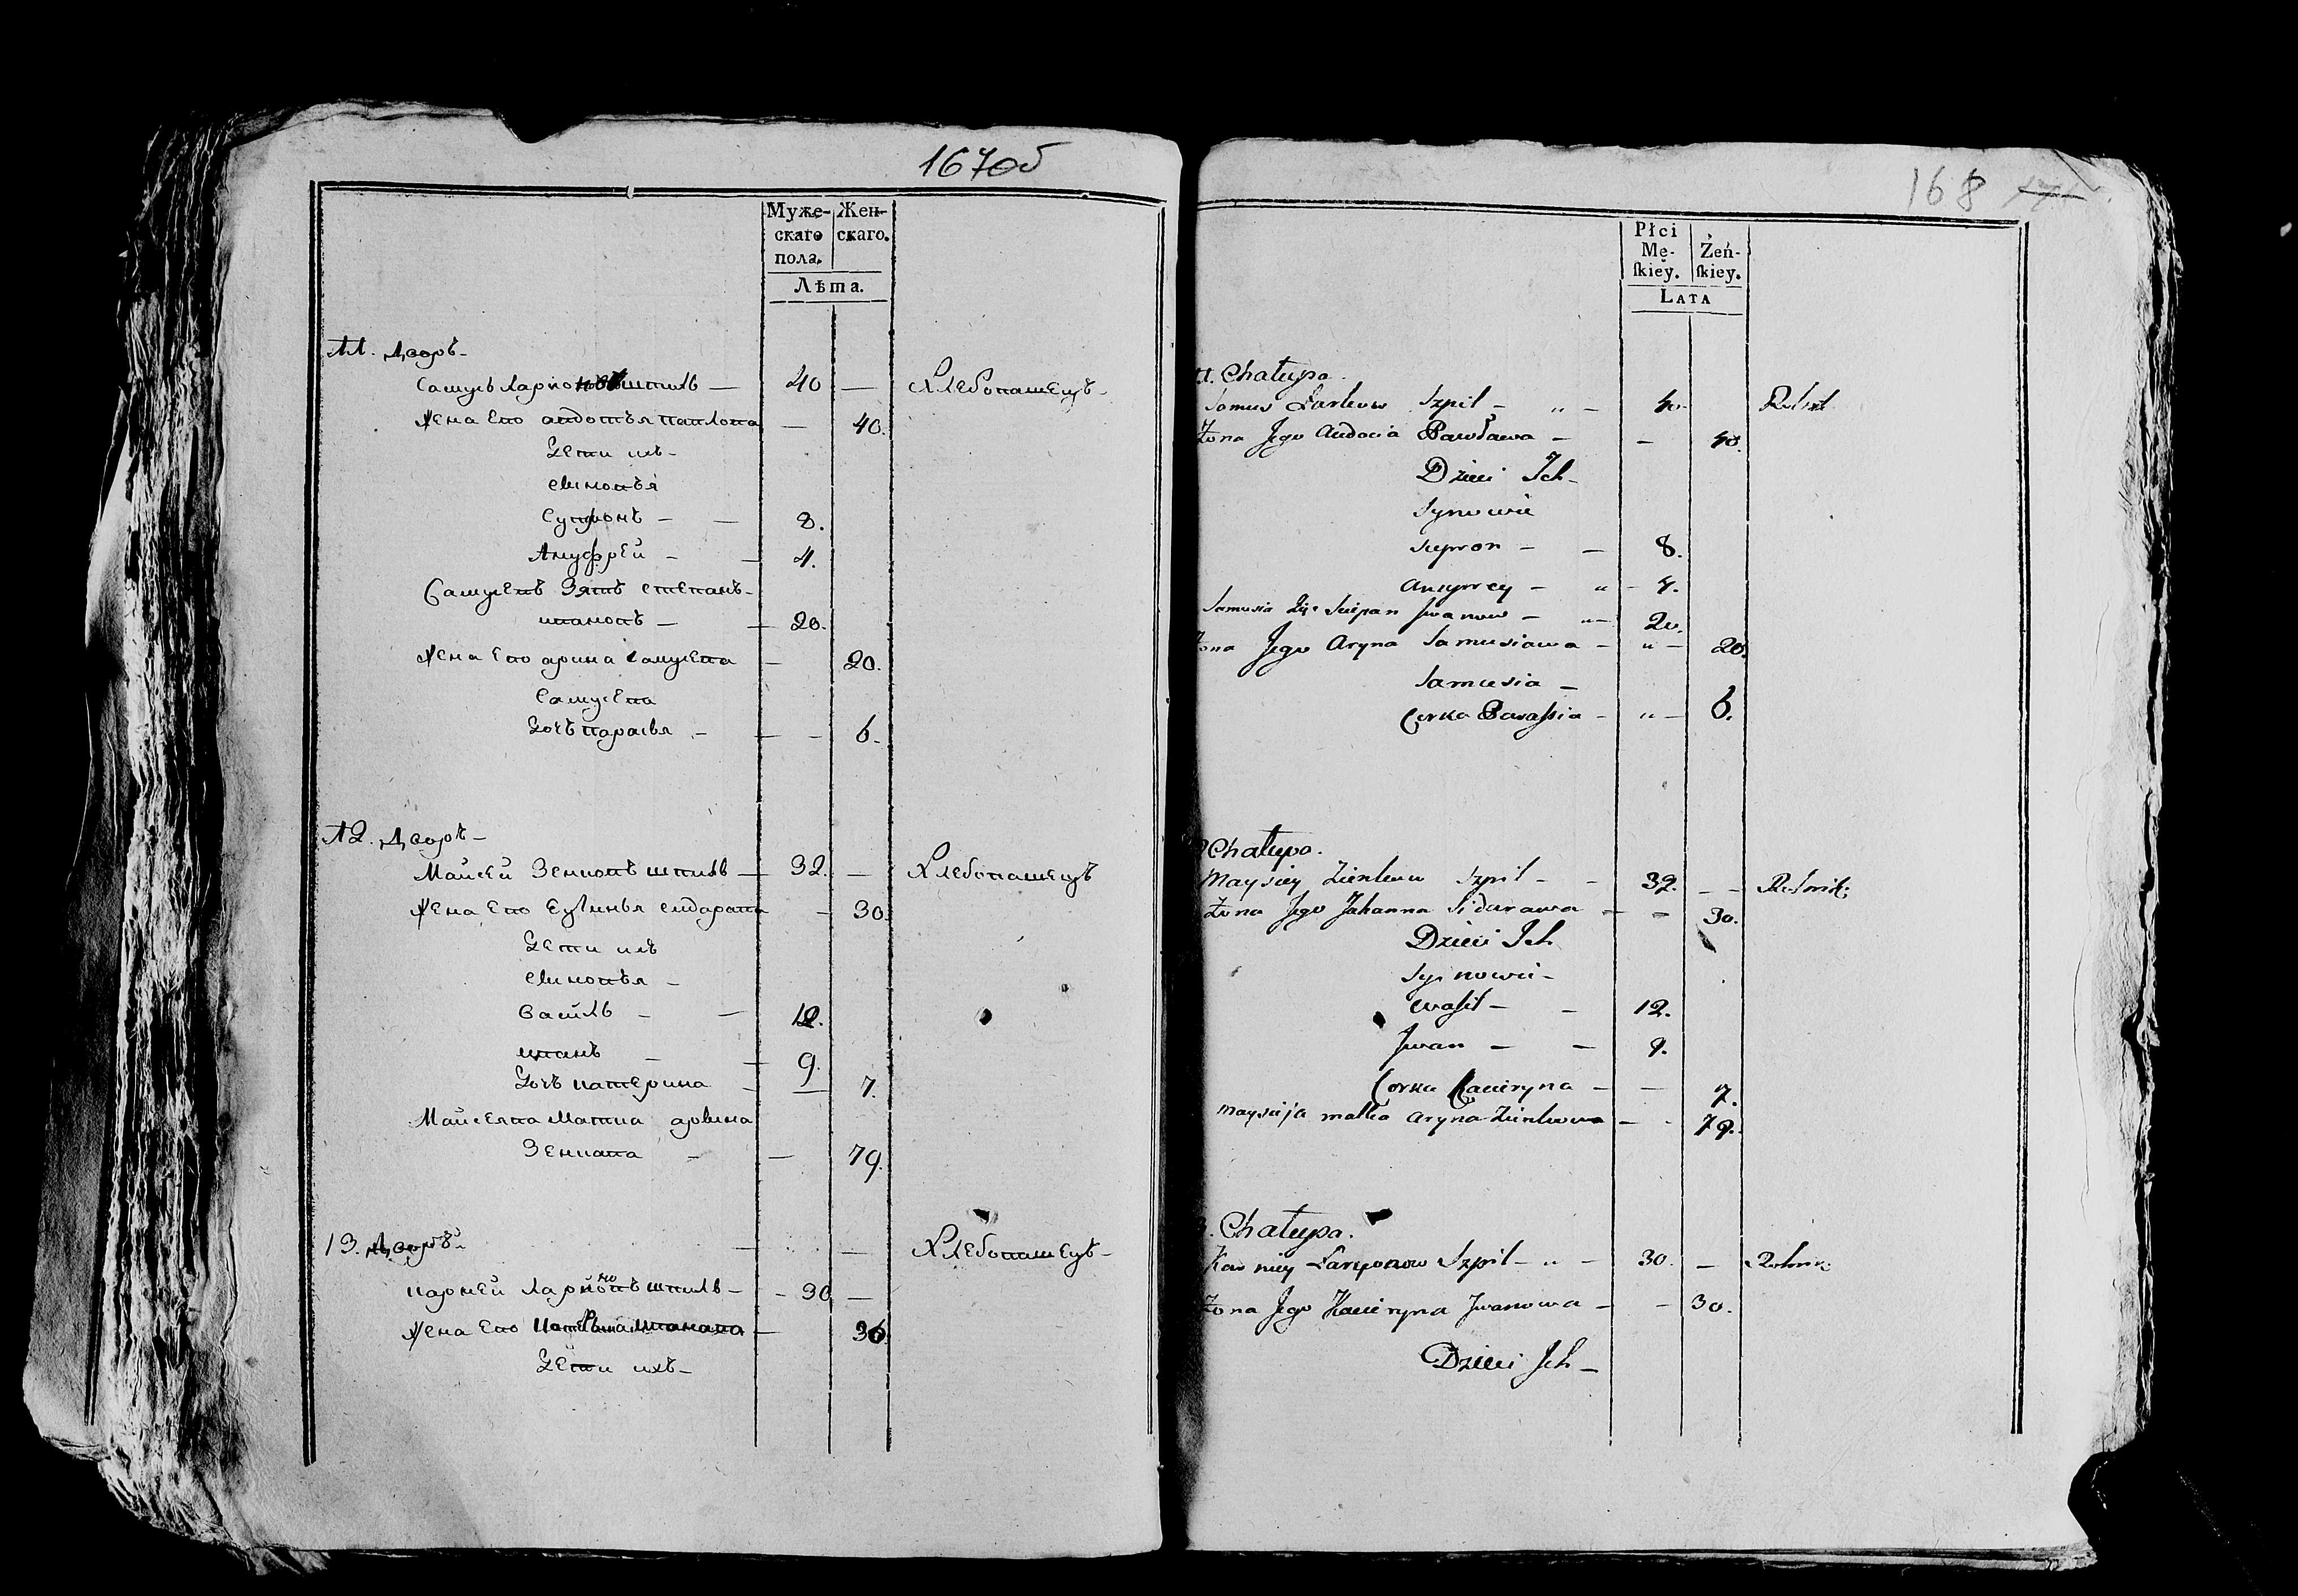 167об
Муже-
скаго
пола.
Жен-
скаго.
Лѣта.
11. Дворъ -
Самусь Ларионовъ шпиль — 40 — Хлебопашецъ -
Жена Его авдотья павлова — 40.
Дети ихъ -
сыновья
Супронъ — — 8.
Ануфрей — — 4.
Самусевъ Зять степанъ -
ивановъ — — 20.
Жена Его арина самусева — 20.
Самусева
Дочь парасья — — — 6.
12. Дворъ —
Майсей Зенковъ шпиль — 32. — Хлебопашецъ
Жена Его сидарава — 30.
Дети ихъ
сыновья —
Василь — — 12.
иванъ — — 9.
Дочь катерина — — 7.
Майсеява Матка арына
Зенкава — — 79.
13. Дворъ — — Хлебопашецъ —
карней Ларионовъ шпиль — 30 —
Жена Его Катерына иванава — 30
Дети ихъ —
168
Płci
Mę-
ſkiey.
Żeń-
ſkiey.
LATA
11. Chałupa.
Samus Szpil — „ — 40. Rolnik
Żona Jego Audocia Pawława — — 40.
Dzieci Ich —
Synowie
Supron — — 8.
Anuprey — „ — 4.
Samusia Zięć Sciepan Jwanow — „ — 20.
Żona Jego Aryna Samusiawa — „ — 20.
Samusia —
Corka Paraſsia — „ — 6.
Chałupa.
Maysiey Zienkow Szpil — — 32. — — Rolnik
Żona Jego Jahanna Sidarawa — — 30.
Dzieci Ich
Synowie —
Waſil — — 12.
Jwan — — 9.
Corka Kacieryna — — 7.
Maysieja matka Aryna Zienkowa — - 79.
Chałupa.
Karniey Laryonow Szpil — „ — 30. — Rolnik
Żona Jego Kacieryna Jwanowa — — 30.
Dzieci Ich —